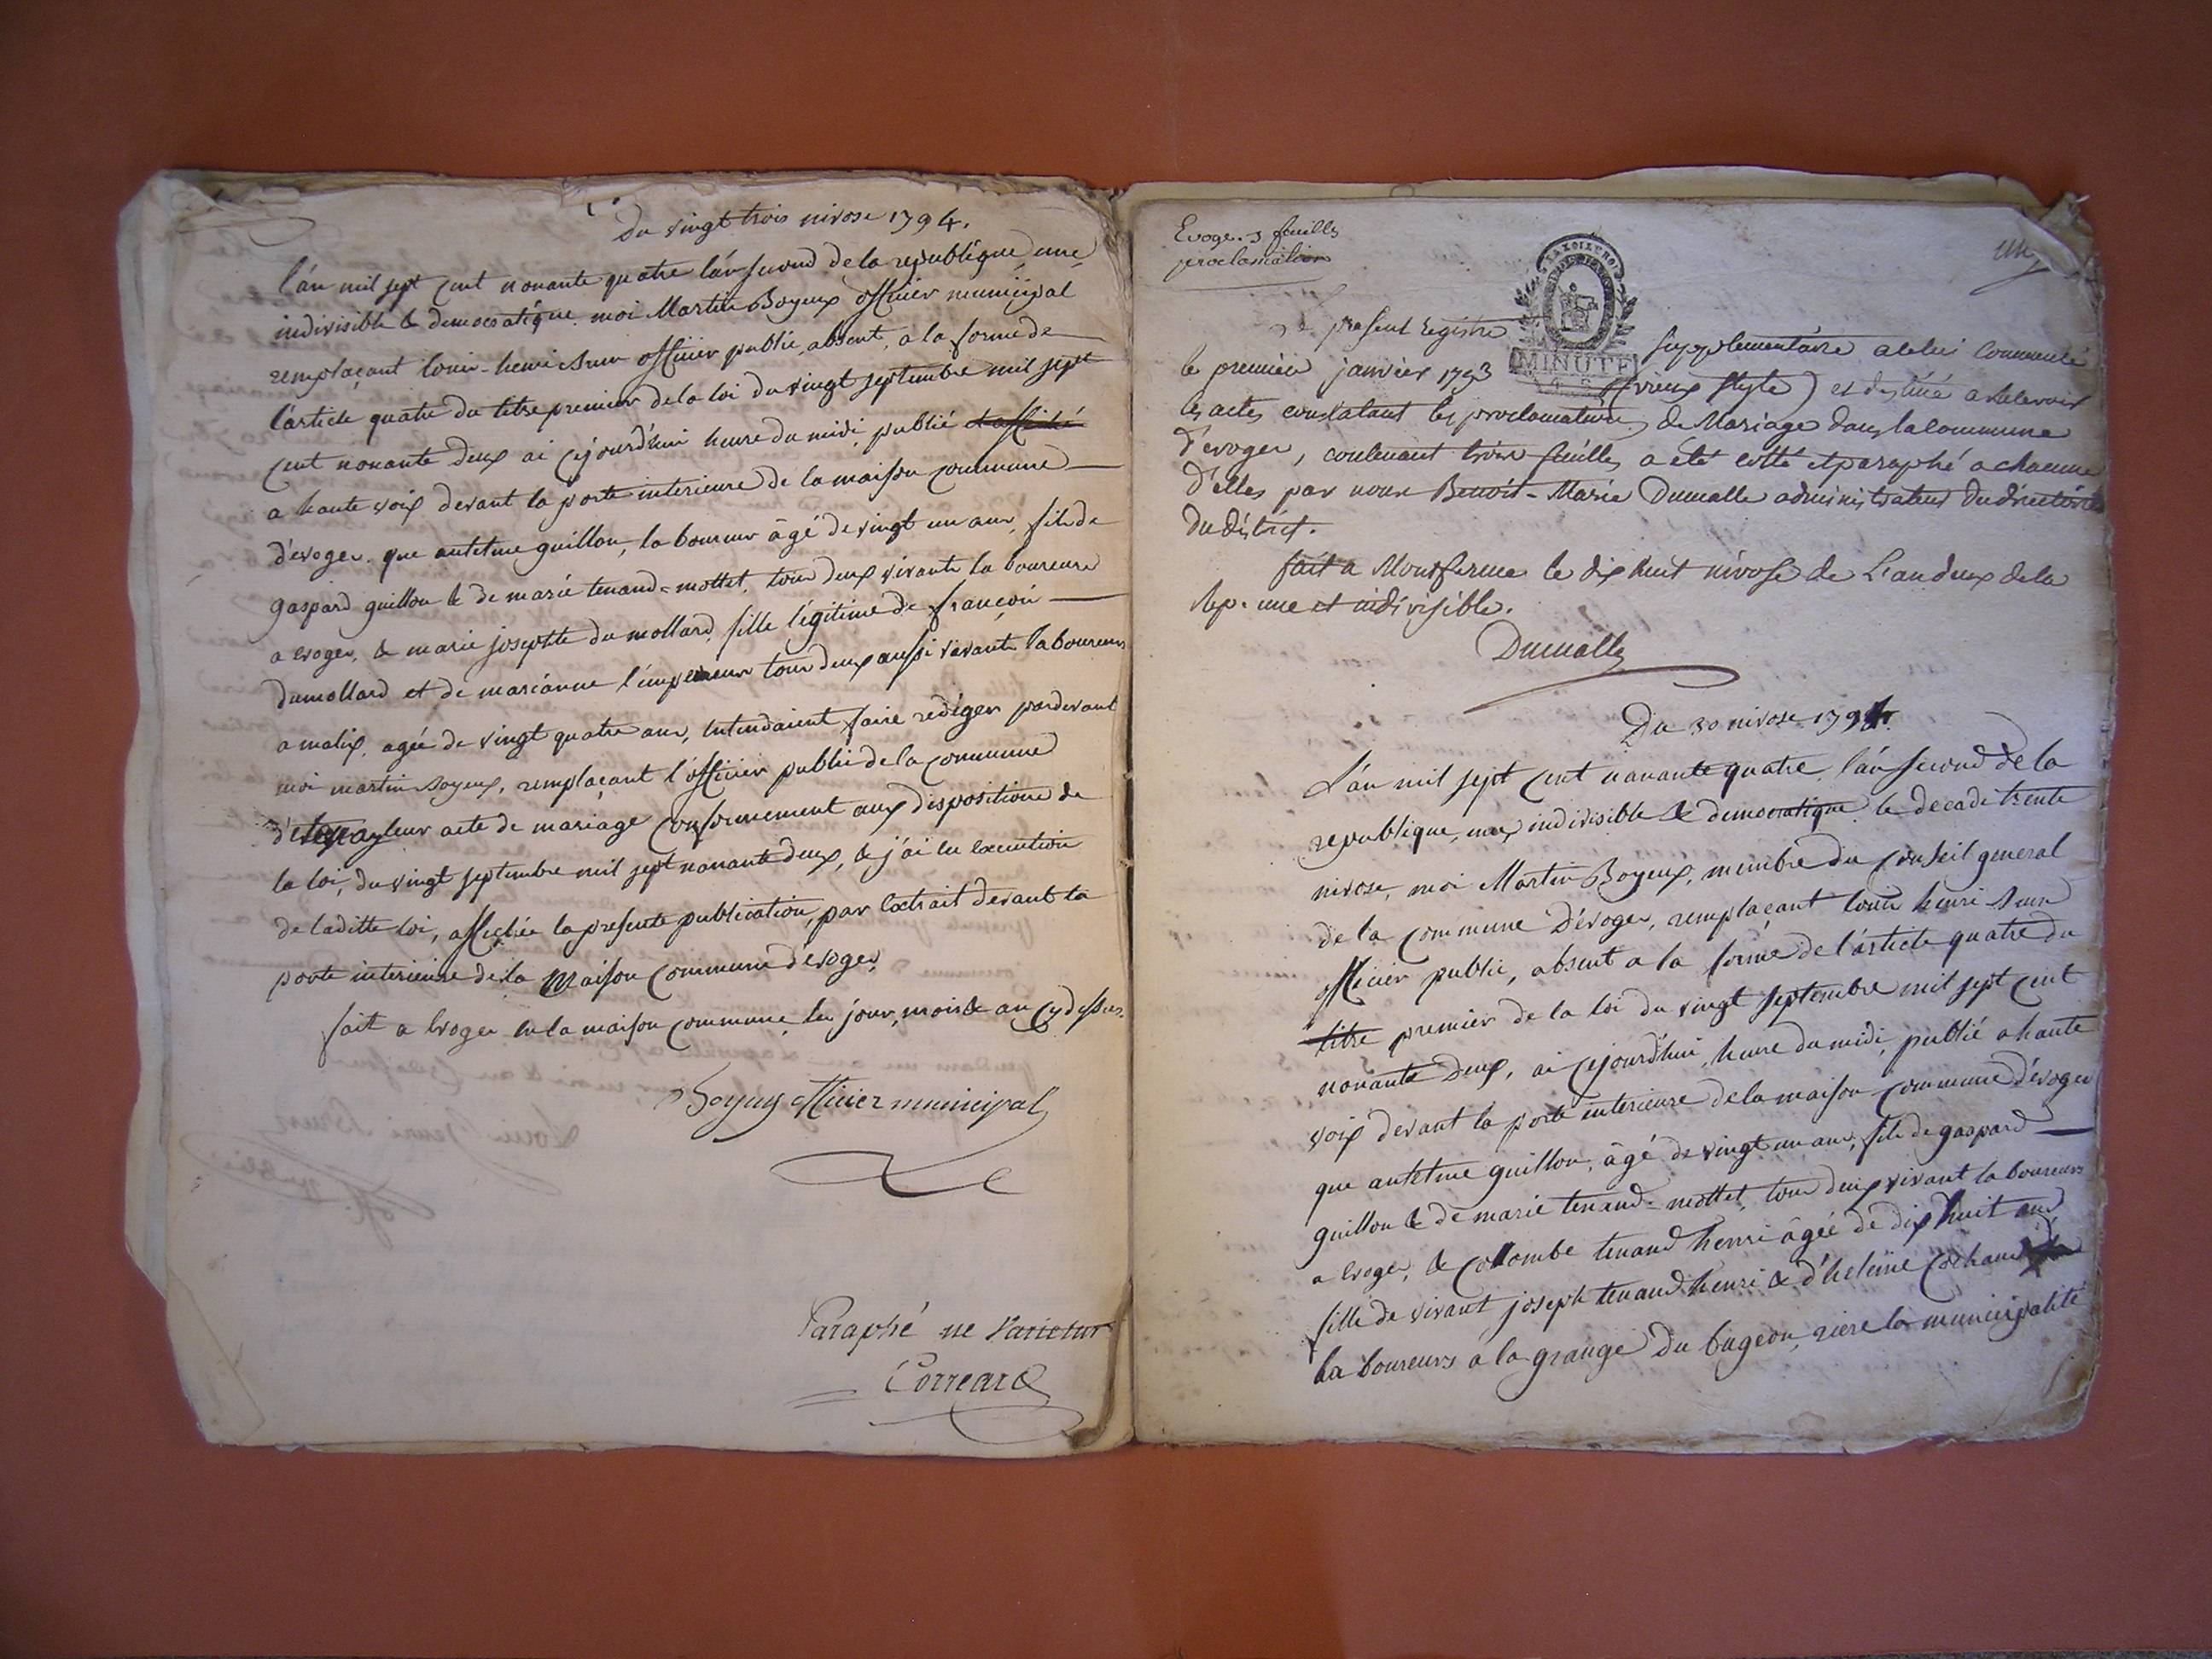 Du vingt trois nivose 1794.
l'an mil sept cent nonante quatre l'an second de la republique, une,
indivisible & democratique. moi Martin Boyeux officier municipal
remplaçant louis-henri Brun officier public, absent, a la forme de
l'article quatre du titre premier de la loi du vingt septembre mil sept
cent nonante deux ai cejourd'hui heure du midi publié et affiché
a haute voix devant la porte interieure de la maison commune
d'evoges. que antelme guillon, laboureur âgé de vingt un ans, fils de
gaspard guillon & de marie tenand=mottet, tous deux vivants laboureurs
a evoges, & marie josephte du mollard, fille légitime de françois
dumollard et de marianne l'empereur tous deux aussi vivants laboureurs
a matix, agée de vingt quatre ans, entendaient faire rédiger pardevant
moi martin Boyeux, remplaçant l'officier public de la commune
leur acte de mariage conformement aux dispositions de
la loi, du vingt septembre mil sept nonante deux, & j'ai en execution
de laditte loi, affichée la presente publication, par extrait devant la
porte interieure de la Maison commune d'evoges,
fait a Evoges en la maison commune les jour, mois & an cydessus.
Boyeux officier municipal
Paraphé ne varietur
Correard
Evoges. 3 feuilles
proclamation
un
MINUTE
Le present registre supplementaire a celui commencé
le premier janvier 1793 (vieux style) et destiné a recevoir
les actes constatant les proclamations de Mariage dans la commune
d'evoges, contenant trois feuilles a été cotté et paraphé a chacune
d'elles par nous Benoit-Marie Dumalle administrateur du directoire
du district.
fait a Montferme le dix huit nivose de L'an deux de la
Rep. une et indivisible.
Dumalle
Du 30 nivose 1794.
L'an mil sept cent nonante quatre, l'an second de la
republique, une, indivisible & democratique. le decadi trente
nivose, moi Martin Boyeux, membre du conseil general
de la commune D'évoges, remplaçant louis henri Brun
officier public, absent a la forme de l'article quatre du
titre premier de la loi du vingt septembre mil sept cent
nonante deux, ai cejourd'hui, heure du midi, publié a haute
voix devant la porte interieure de la maison commune d'évoges
que antelme guillon, âgé de vingt un ans, fils de gaspard
guillon & de marie tenand=mottet, tous deux vivant laboureurs
a evoges, & colombe tenand henri âgée de dix huit ans,
fille de vivant joseph tenand henri & d'heleine cochand
laboureurs a la grange du bugeon, riere la municipalité